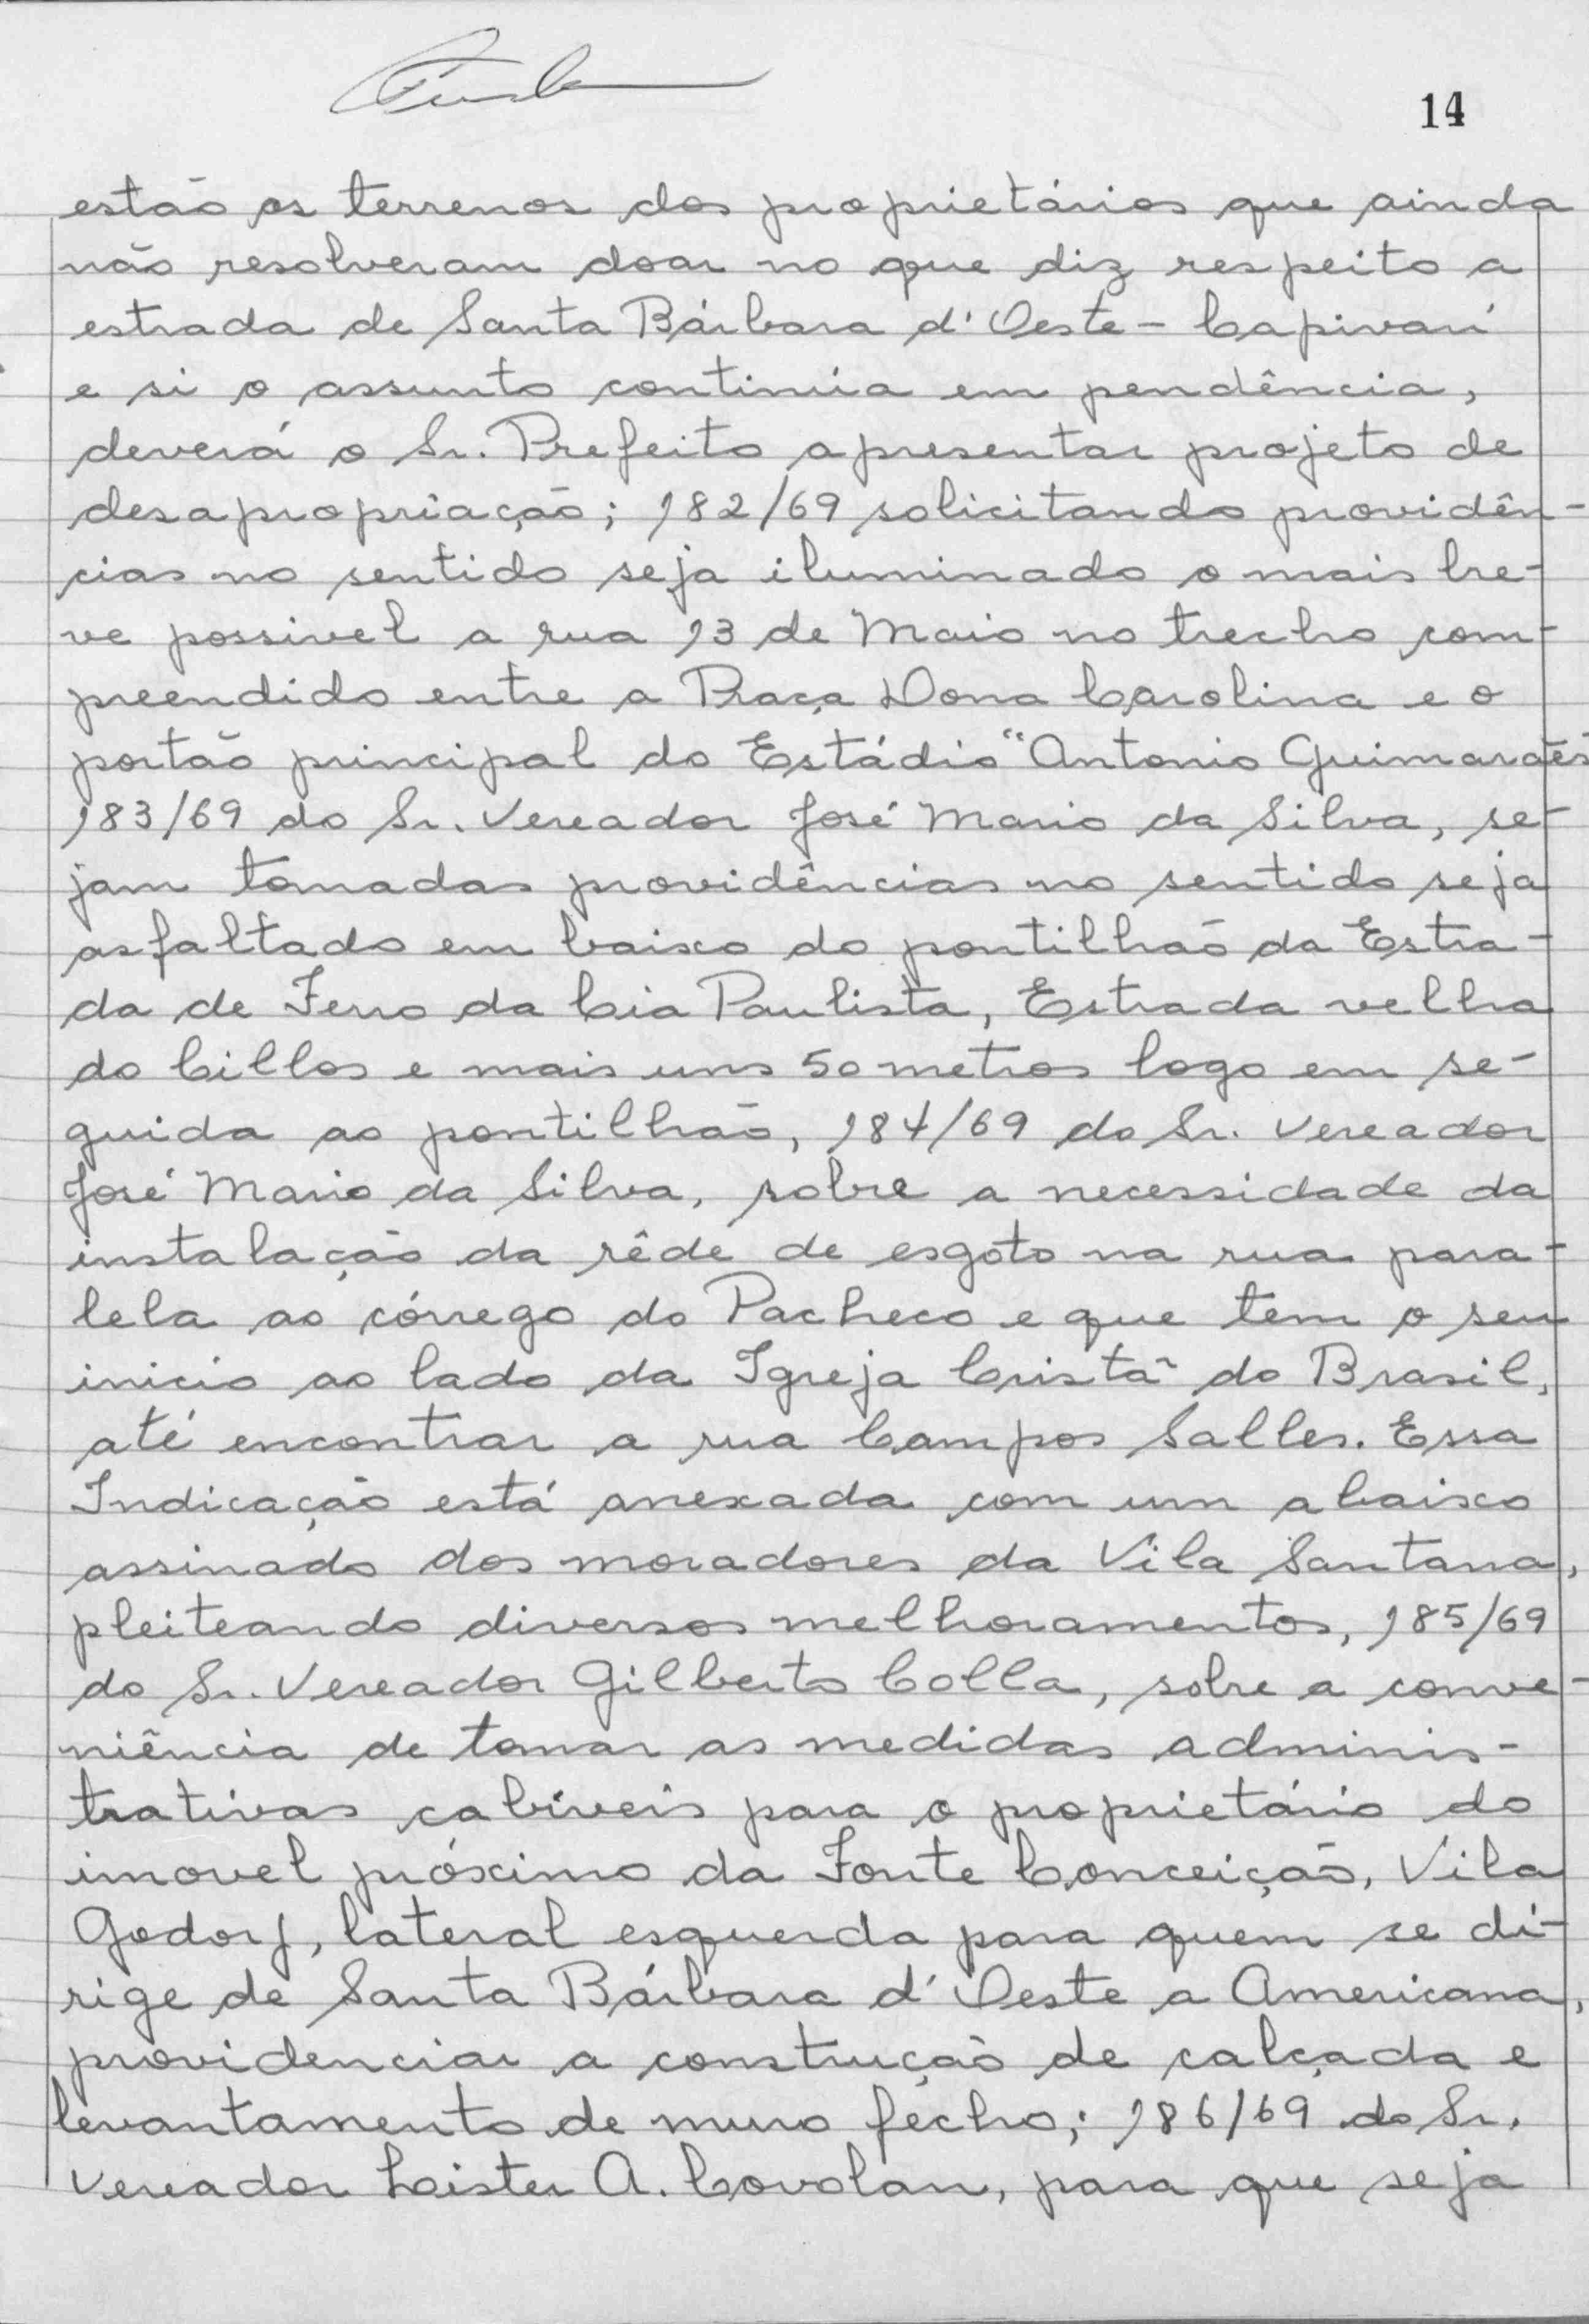 14
estão os terrenos dos proprietários que ainda
não resolveram doar no que diz respeito a
estrada de Santa Bárbara d'Oeste - Capivarí
e si o assunto continúa em pendência,
deverá o Sr. Prefeito apresentar projeto de
desapropriação; 182/69 solicitando providên-
cias no sentido seja iluminado o mais bre-
ve possivel a rua 13 de Maio no trecho com-
preendido entre a Praça Dona Carolina e o
portão principal do Estádio "Antonio Guimarães
183/69 do Sr. Vereador José Mario da Silva, se-
jam tomadas providências no sentido seja
asfaltado em baixo do pontilhão da Estra-
da de Ferro da Cia Paulista, Estrada velha
do Cillos e mais uns 50 metros logo em se-
guida ao pontilhão, 184/69 do Sr. Vereador
José Mario da Silva, sobre a necessidade da
instalação da rêde de esgoto na rua para-
lela ao córrego do Pacheco e que tem o seu
inicio ao lado da Igreja Cristã do Brasil,
até encontrar a rua Campos Salles. Essa
Indicação está anexada com um abaixo
assinado dos moradores da Vila Santana,
pleiteando diversos melhoramentos, 185/69
do Sr. Vereador Gilberto Colla, sobre a conve-
niência de tomar as medidas adminis-
trativas cabíveis para o proprietário do
imovel próximo da Fonte Conceição, Vila
Godoy, lateral esquerda para quem se di-
rige de Santa Bárbara d'Oeste a Americana,
providenciar a construção de calçada e
levantamento de muro fécho; 186/69 do Sr.
Vereador Leister A. Covolan, para que seja